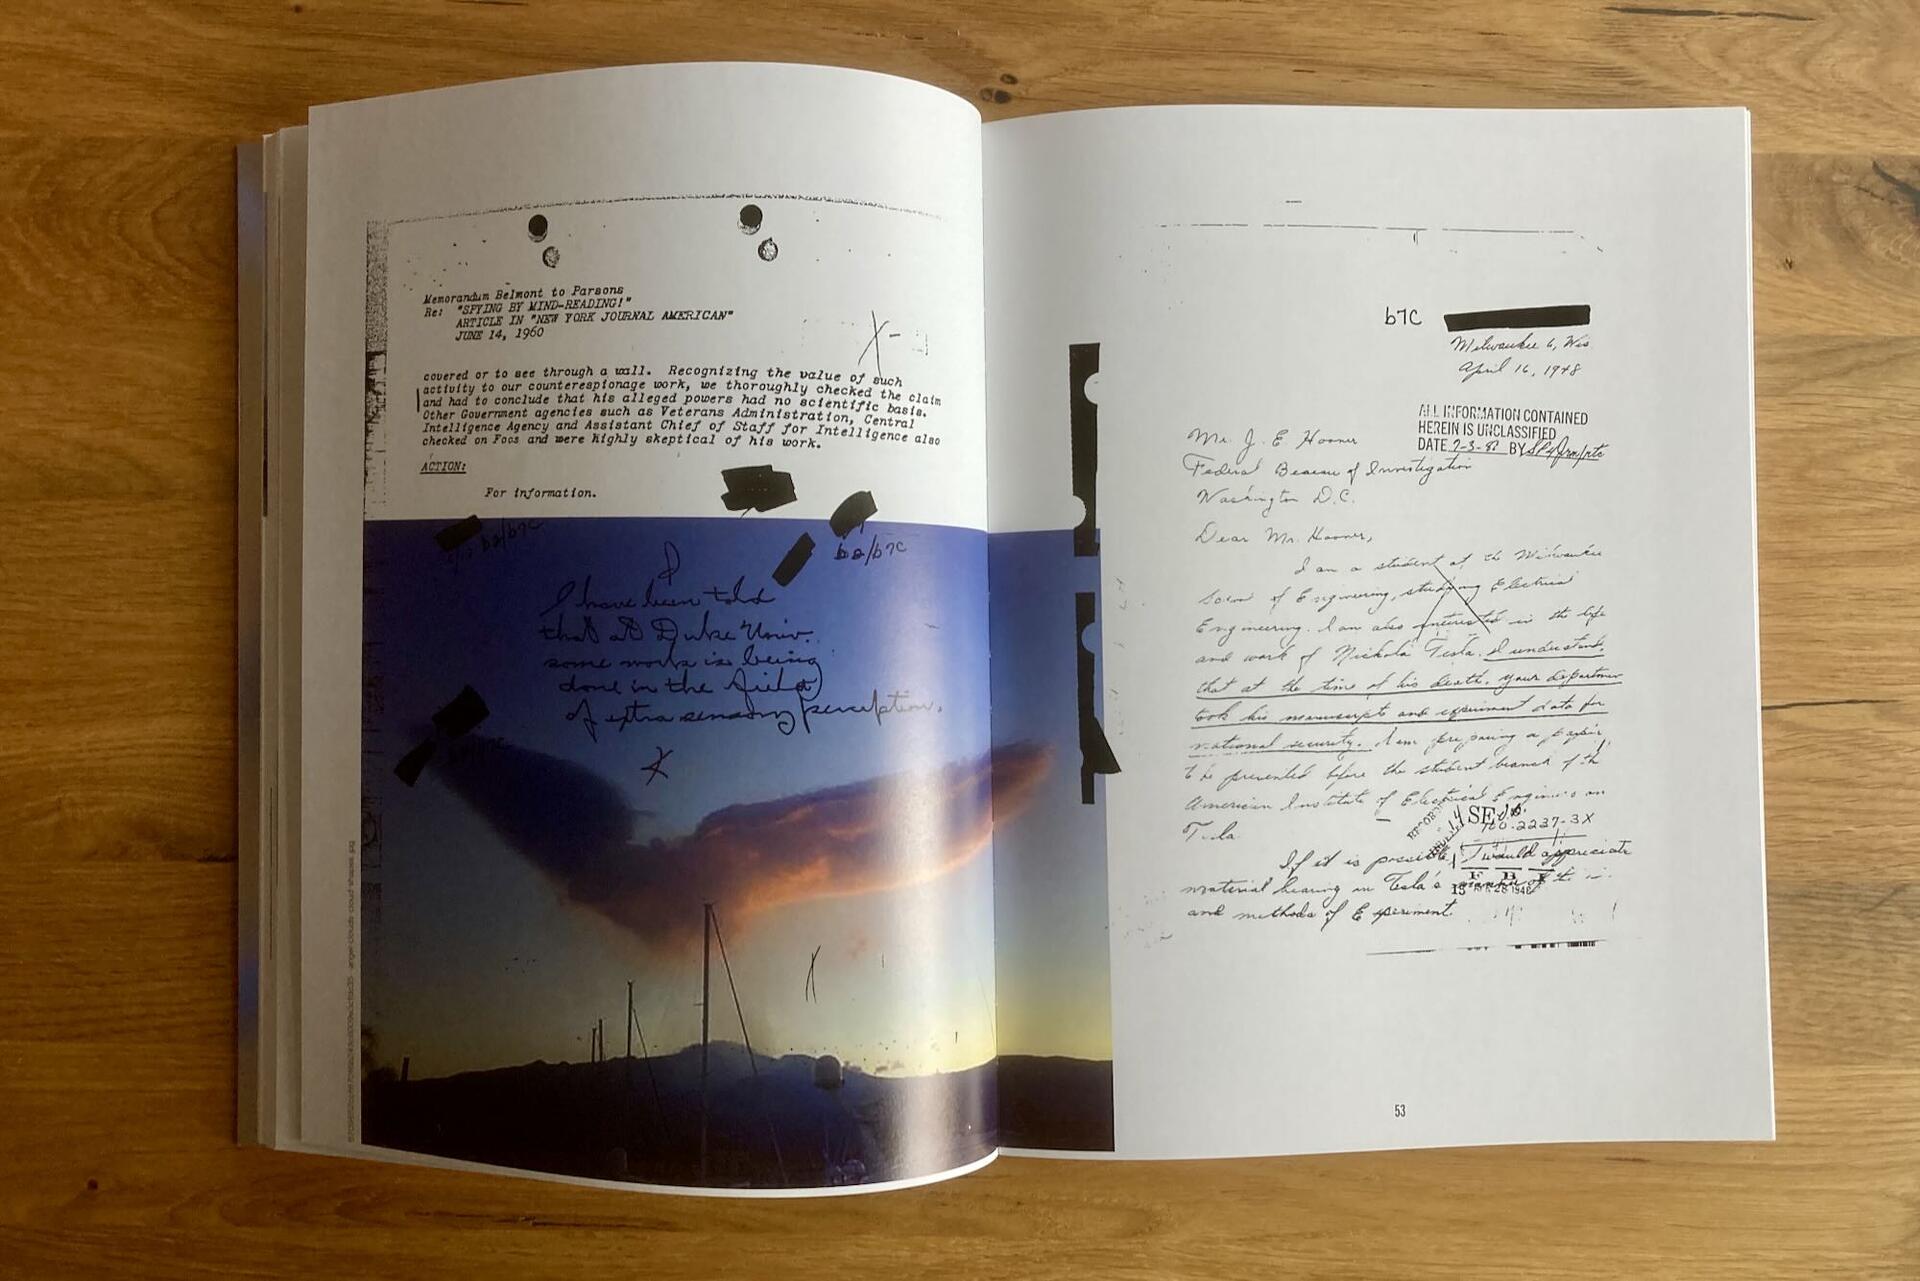 Memorandum Belmont to Parsons
Re: "SPYING BY MIND-READING!"
ARTICLE IN "NEW YORK JOURNAL AMERICAN"
JUNE 14, 1960
covered or to see through a wall. Recognizing the value of such
activity to our counterespionage work, we thoroughly checked the claim
and had to conclude that his alleged powers had no scientific basis.
Other Government agencies such as Veterans Administration, Central
Intelligence Agency and Assistant Chief of Staff for Intelligence also
checked on Foos and were highly skeptical of his work.
ACTION:
For information.
b2/b7C
b2/b7C
I have been told
that at Duke Univ.
some work is being
done in the field
of extra sensory perception.
b7C
Milwaukee 6, Wis.
April 16, 1948
ALL INFORMATION CONTAINED
HEREIN IS UNCLASSIFIED
DATE BY
Mr. J. E Hoover
Federal Beaeau of Investigation
Washington D.C.
Dear Mr. Hoover,
I am a student at the Milwaukee
of Engineering, studying Electrical
Engineering. I am also interested in the life
and work of Nickola Tesla. I understand,
that at the time of his death, your departmen
took his manuscripts and experiment data for
national security. I am preparing a paper
to be presented before the student branch of th
American Institute of Electrical Engineers on
Tesla.
100-2237-3X
If it is possible, I would appreciate
material bearing on Tesla's of the
F B I
and methods of Experiment.
53